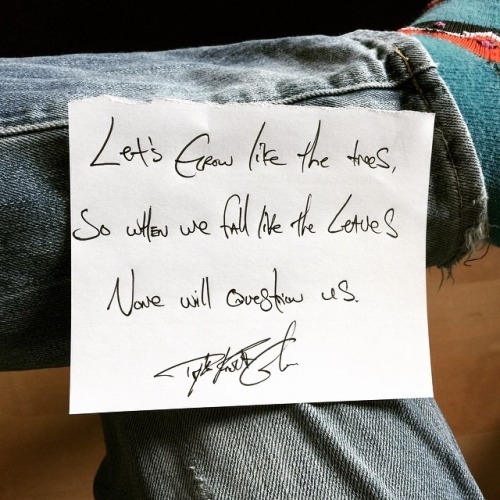 Let's Grow like the trees,
So when we fall like the Leaves
None will question us.